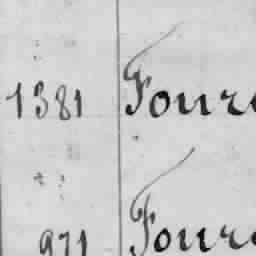 1381 Four
971 Four